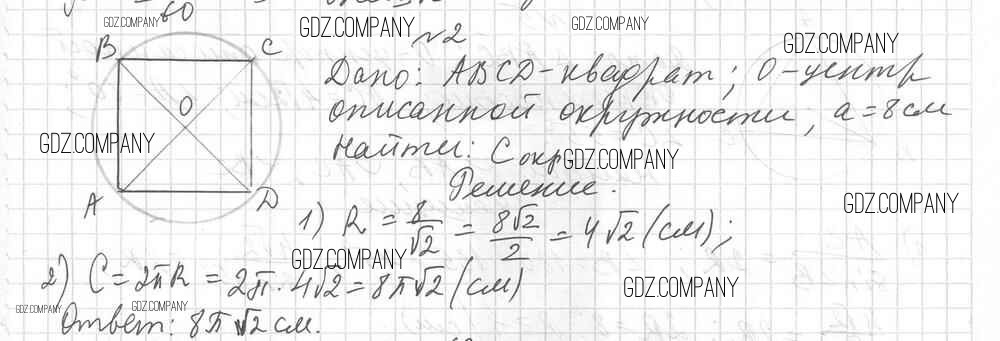 60
GDZ.COMPANY
GDZ.COMPANY
GDZ.COMPANY
GDZ.COMPANY
№2
B C
O
A D
Дано: ABCD - квадрат; O - центр
описанной окружности, a = 8 см
GDZ.COMPANY
Найти: C окр
GDZ.COMPANY
Решение.
GDZ.COMPANY
1) R = 8/√2 = 8√2/2 = 4√2 (см);
GDZ.COMPANY
2) C = 2πR = 2π · 4√2 = 8π√2 (см)
GDZ.COMPANY
GDZ.COMPANY
GDZ.COMPANY
Ответ: 8π√2 см.